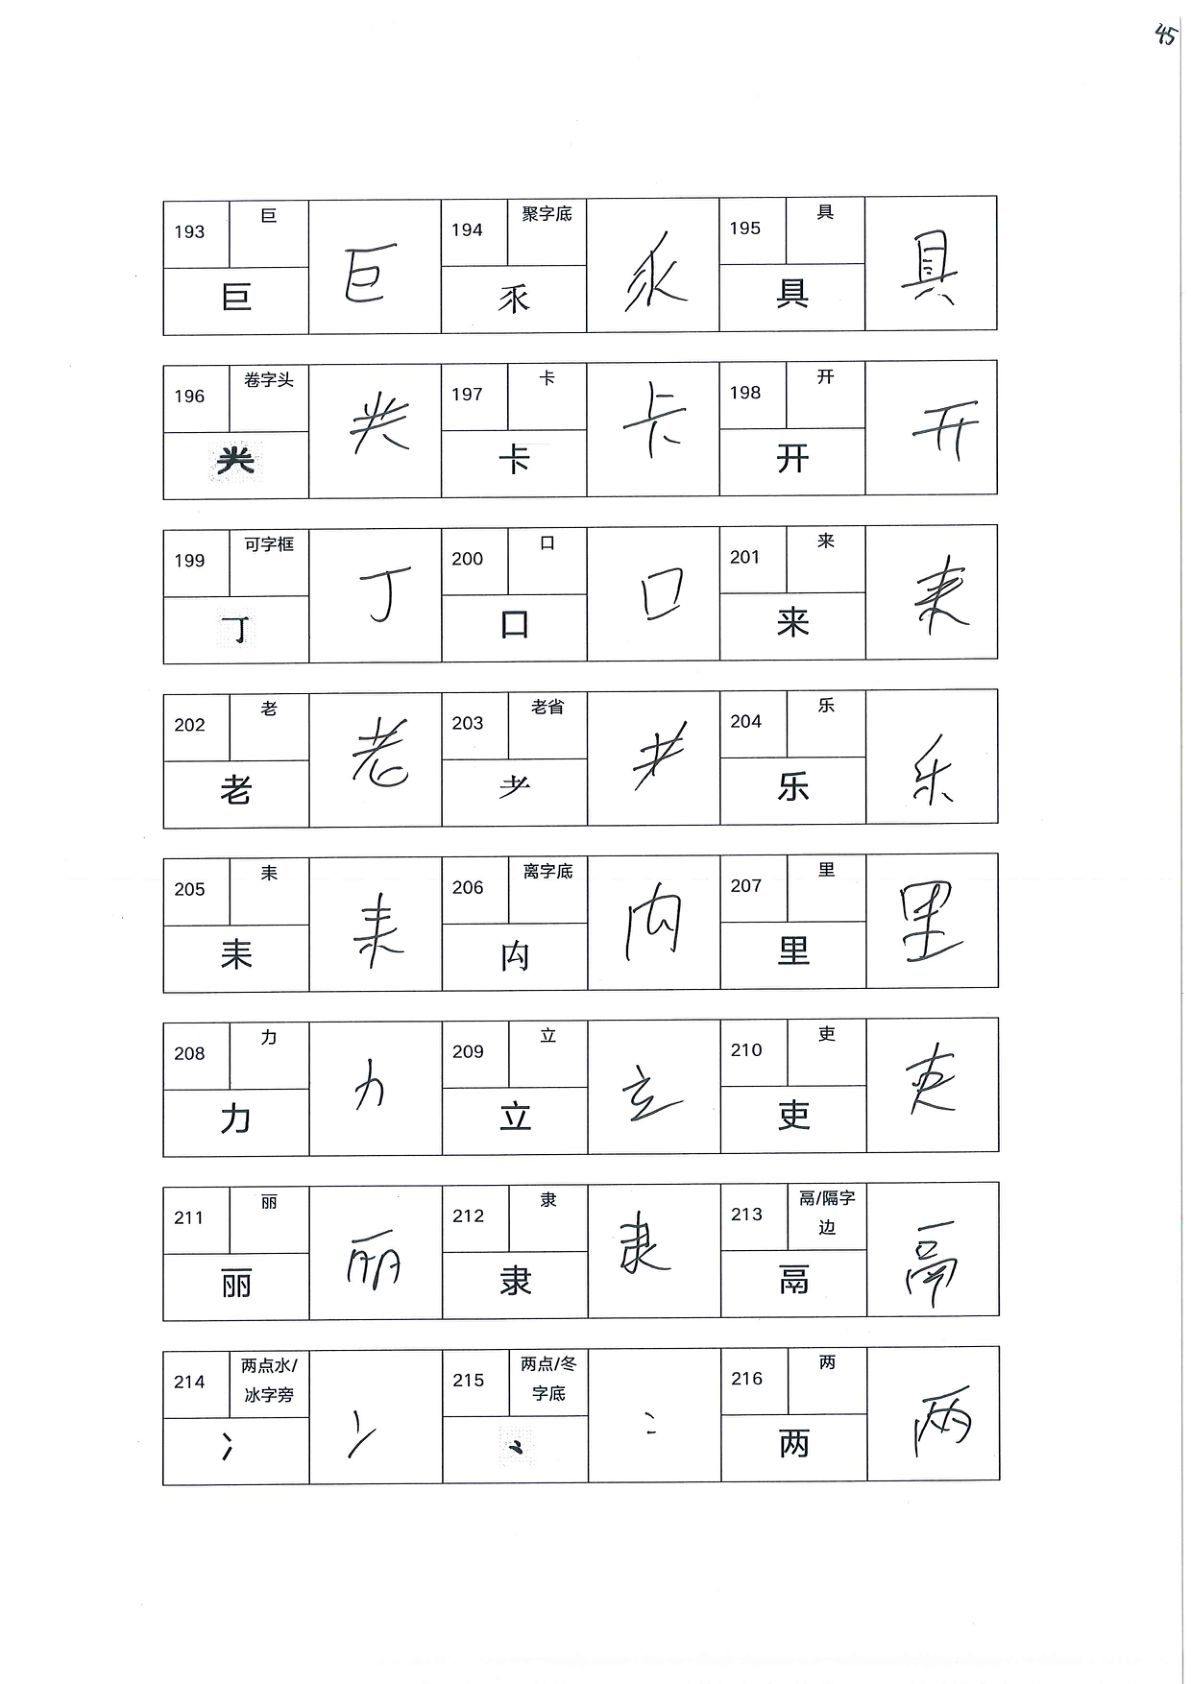 45
193 巨 巨 巨 194 聚字底 乑 乑 195 具 具 具
196 卷字头 龹 龹 197 卡 卡 卡 198 开 开 开
199 可字框 丁 丁 200 口 口 口 201 来 来 来
202 老 老 老 203 老省 耂 耂 204 乐 乐 乐
205 耒 耒 耒 206 离字底 禸 禸 207 里 里 里
208 力 力 力 209 立 立 立 210 吏 吏 吏
211 丽 丽 丽 212 隶 隶 隶 213 鬲/隔字边 鬲 鬲
214 两点水/冰字旁 冫 冫 215 两点/冬字底 ⺀ ⺀ 216 两 两 两